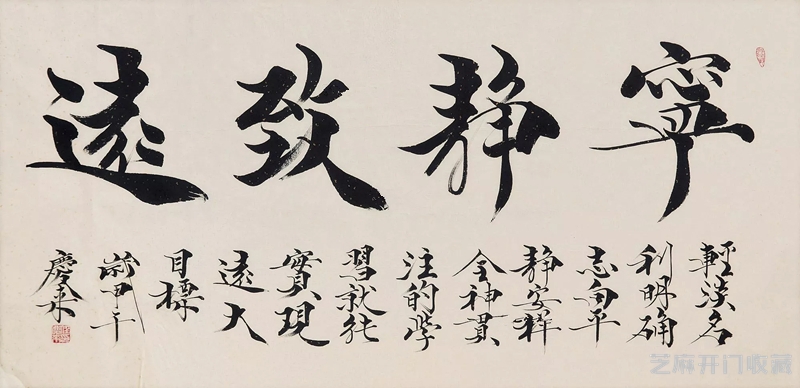 寧靜致遠
輕淡名
利明确
志向平
静安祥
全神貫
注的学
習就能
實現
遠大
目標
歲甲午
慶來
芝麻开门收藏